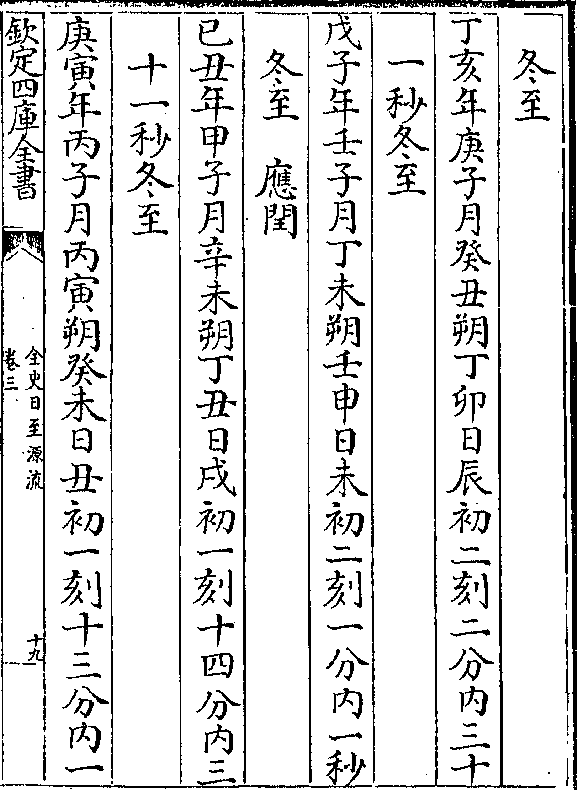 冬至
丁亥年庚子月癸丑朔丁卯日辰初二刻二分内三十
一秒冬至
戊子年壬子月丁未朔壬申日未初二刻一分内一秒
冬至　應閏
已丑年甲子月辛未朔丁丑日戌初一刻十四分内三
十一秒冬至
庚寅年丙子月丙寅朔癸未日丑初一刻十三分内一
欽定四庫全書
全史日至源流
卷三
十九